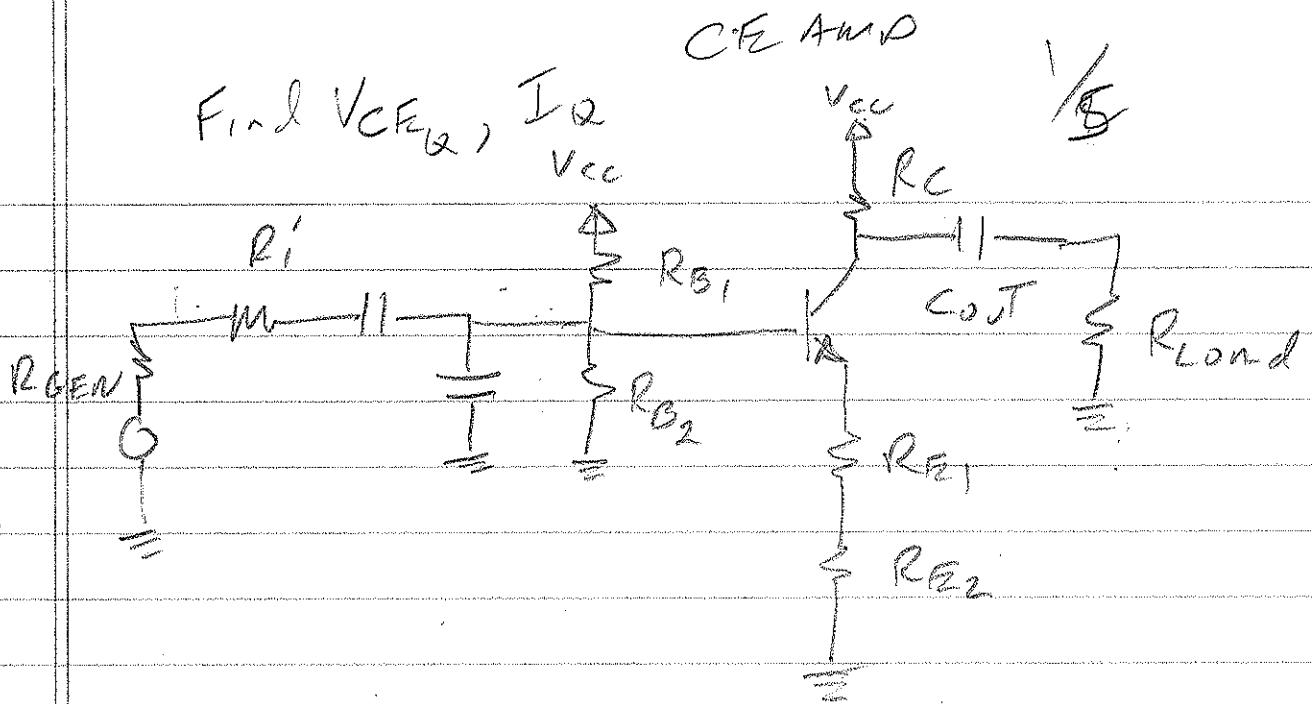 CE AMP
1/5
Find VCEQ, IQ
VCC
VCC
RC
Ri
RB1
COUT
RLoad
RGEN
RB2
RE1
RE2